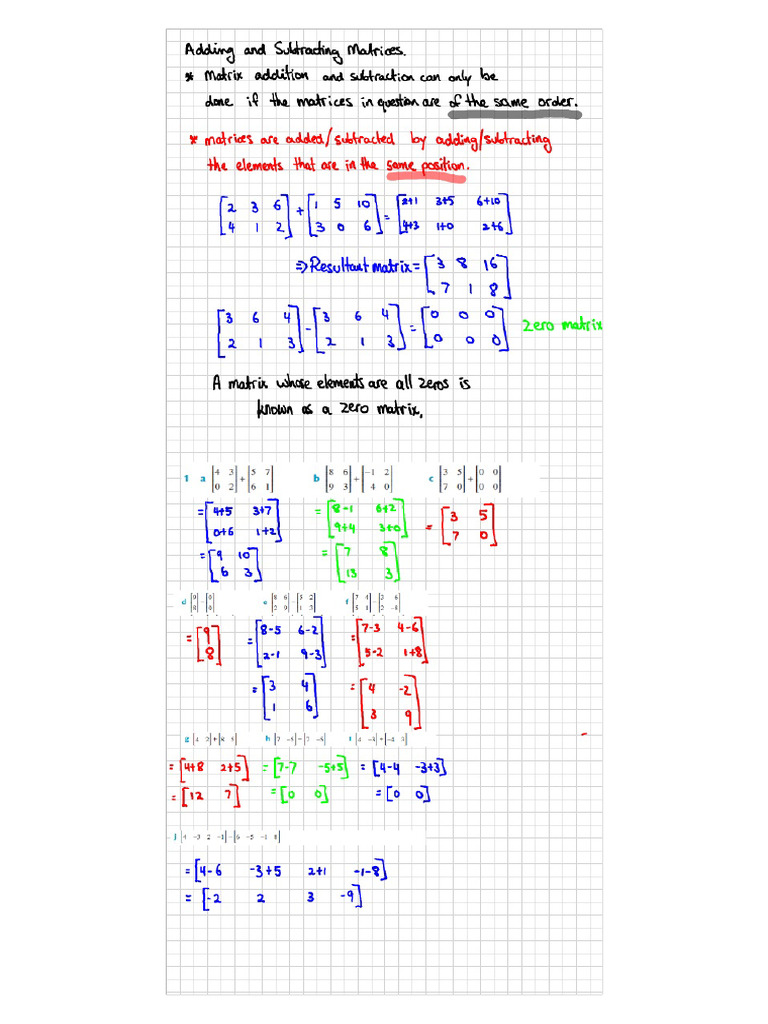 Adding and Subtracting Matrices.
* Matrix addition and subtraction can only be
done if the matrices in question are of the same order.
* matrices are added/subtracted by adding/subtracting
the elements that are in the same position.
[2 3 6] + [1 5 10] = [2+1 3+5 6+10]
[4 1 2] [3 0 6] [4+3 1+0 2+6]
=> Resultant matrix = [3 8 16]
[7 1 8]
[3 6 4] - [3 6 4] = [0 0 0] Zero matrix
[2 1 3] [2 1 3] [0 0 0]
A matrix whose elements are all zeros is
known as a zero matrix.
1 a |4 3| + |5 7| b |8 6| + |-1 2| c |3 5| + |0 0|
|0 2| |6 1| |9 3| |4 0| |7 0| |0 0|
= [4+5 3+7] = [8-1 6+2] = [3 5]
[0+6 1+2] [9+4 3+0] [7 0]
= [9 10] = [7 8]
[6 3] [13 3]
d |9| - |0| e |8 6| - |5 2| f |7 4| - |3 6|
|8| |0| |2 9| |1 3| |5 1| |2 -8|
= [9] = [8-5 6-2] = [7-3 4-6]
[8] [2-1 9-3] [5-2 1+8]
= [3 4] = [4 -2]
[1 6] [3 9]
g |4 2| + |8 5| h |7 -5| - |7 -5| i |4 -3| + |-4 3|
= [4+8 2+5] = [7-7 -5+5] = [4-4 -3+3]
= [12 7] = [0 0] = [0 0]
j |4 -3 2 -1| - |6 -5 -1 8|
= [4-6 -3+5 2+1 -1-8]
= [-2 2 3 -9]